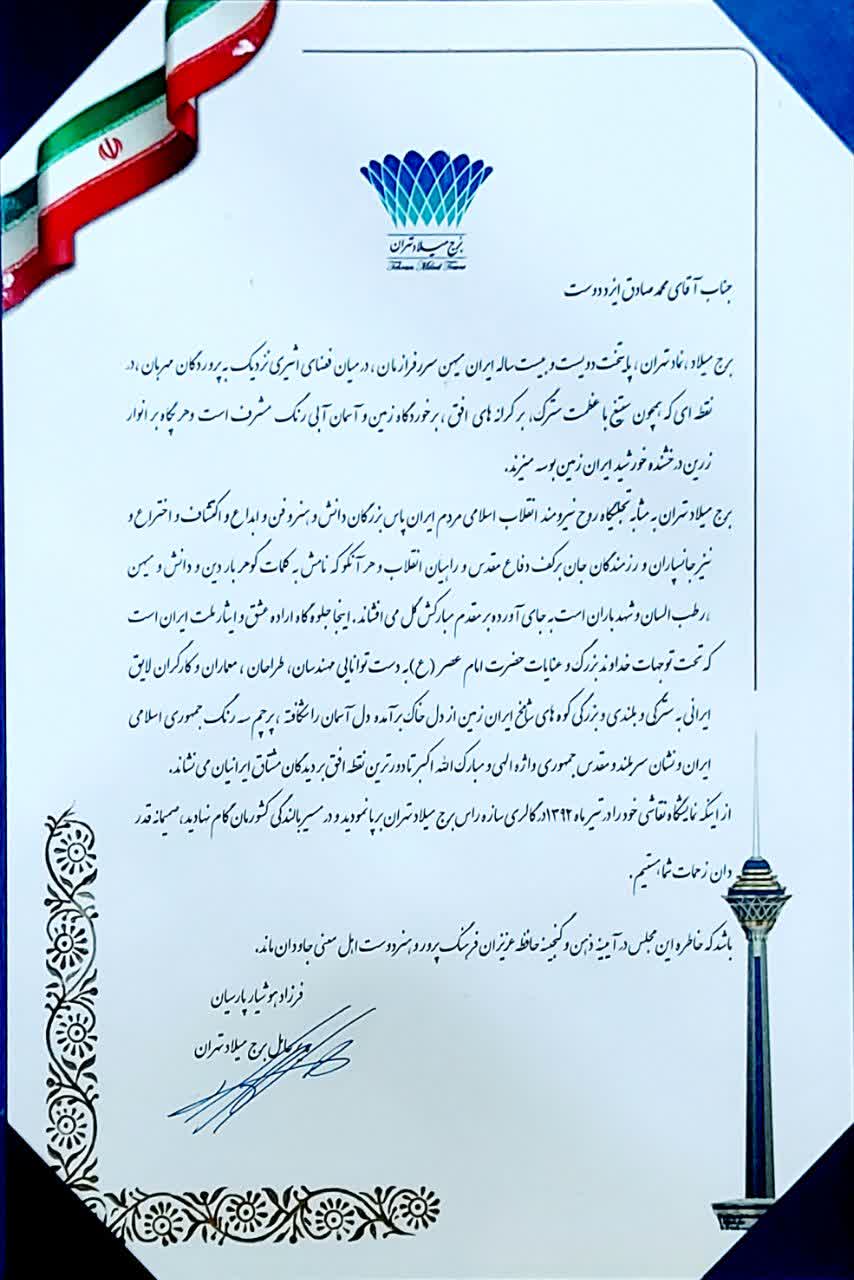 برج میلاد تهران
Tehran Milad Tower
جناب آقای محمد صادق ایزد دوست
برج میلاد ، نماد تهران ، پایتخت دویست و بیست ساله ایران میهن سرفرازمان ، در میان فضای اثیری نزدیک به پروردگان مهربان ، در
نقطه ای که همچون ستیغ با عظمت سترگ، بر کرانه های افق ، برخوردگاه زمین و آسمان آبی رنگ مشرف است و هر پگاه بر انوار
زرین درخشنده خورشید ایران زمین بوسه میزند.
برج میلاد تهران به مثابه تجلیگاه روح نیرومند انقلاب اسلامی مردم ایران پاس بزرگان دانش و هنر و فن و ابداع و اکتشاف و اختراع و
نیز جانسپاران و رزمندگان جان برکف دفاع مقدس و راهیان انقلاب و هر آنکو که نامش به کلمات گوهر بار دین و دانش و میهن
، رطب السان و شهد باران است به جای آورده بر مقدم مبارکش گل می افشاند . اینجا جلوه گاه اراده عشق و ایثار ملت ایران است
که تحت توجهات خداوند بزرگ و عنایات حضرت امام عصر (ع) به دست توانایی مهندسان، طراحان ، معماران و کارگران لایق
ایرانی به سترگی و بلندی و بزرگی کوه های شامخ ایران زمین از دل خاک برآمده دل آسمان را شکافته ، پرچم سه رنگ جمهوری اسلامی
ایران و نشان سربلند و مقدس جمهوری واژه الهی و مبارک الله اکبر تا دورترین نقطه افق بر دیدگان مشتاق ایرانیان می نشاند.
از اینکه نمایشگاه نقاشی خود را در تیر ماه ۱۳۹۲ در گالری سازه راس برج میلاد تهران برپا نمودید و در مسیر بالندگی کشورمان گام نهادید، صمیمانه قدر
دان زحمات شما هستیم .
باشد که خاطره این مجلس در آیینه ذهن و گنجینه حافظه عزیزان فرهنگ پرور و هنر دوست اهل معنی جاودان ماند.
فرزاد هوشیار پارسیان
مدیر عامل برج میلاد تهران